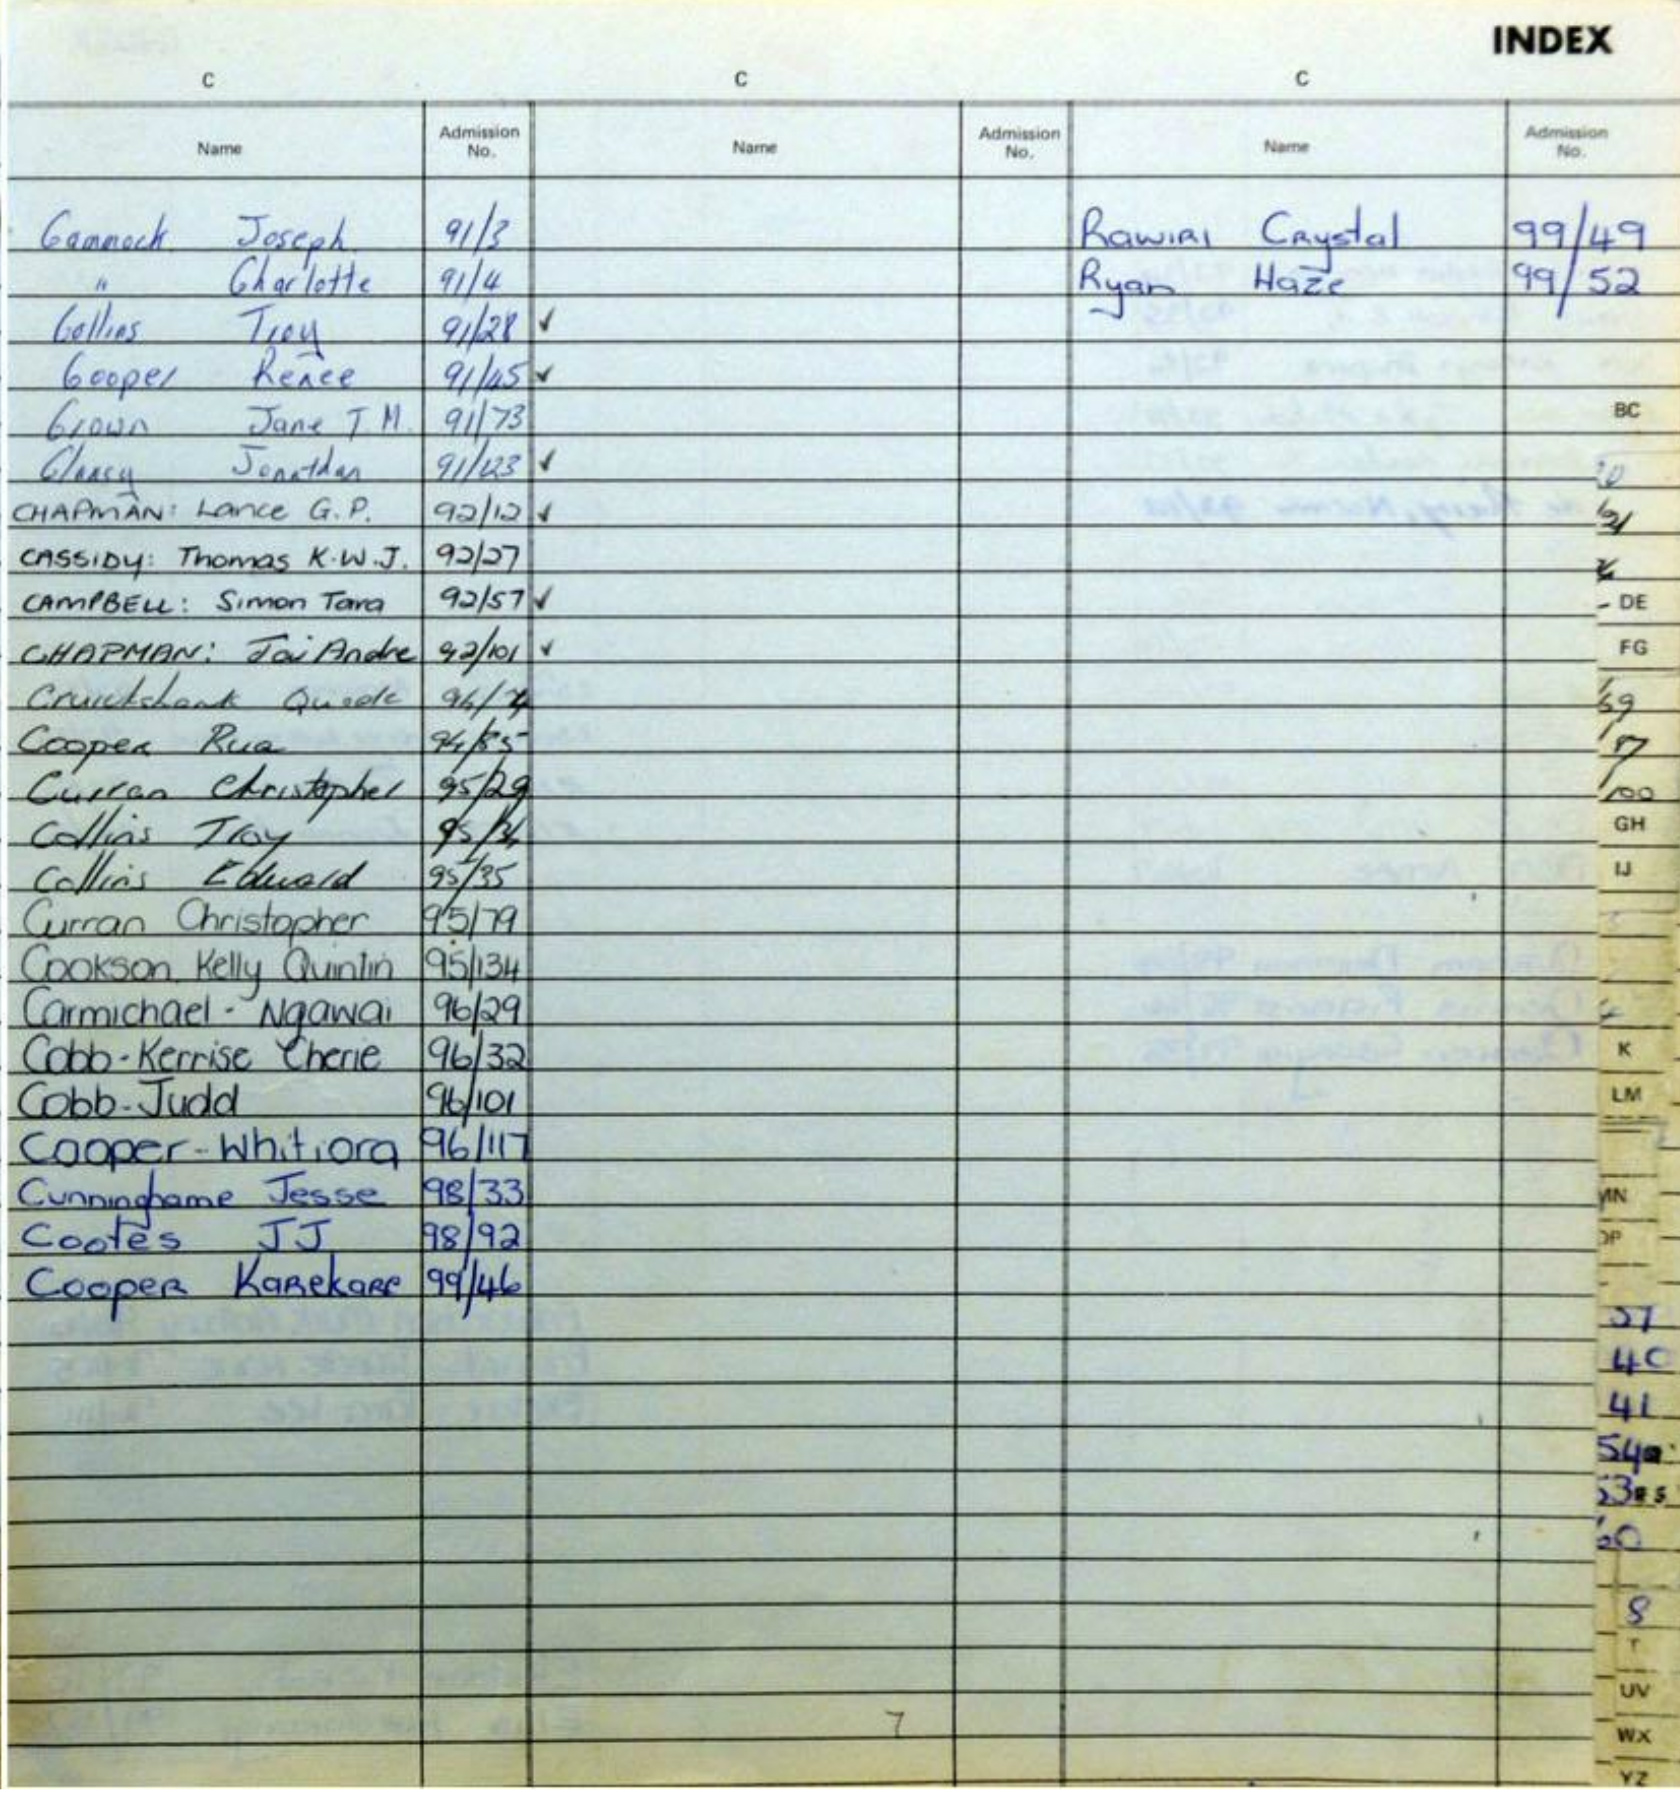 INDEX
C C C
Name Admission No. Name Admission No. Name Admission No.
Cammock Joseph 91/3
" Charlotte 91/4
Collins Troy 91/28 ✓
Cooper Renee 91/45 ✓
Crown Jane T.M. 91/73
Clancy Jonathan 91/123 ✓
CHAPMAN: Lance G.P. 92/12 ✓
CASSIDY: Thomas K.W.J. 92/27
CAMPBELL: Simon Tara 92/57 ✓
CHAPMAN: Jai Andre 92/101 ✓
Cruickshank
Cooper Rua 94/85
Curran Christopher 95/29
Collins Troy
Collins Edward 95/35
Curran Christopher 95/79
Cookson Kelly Quintin 95/134
Carmichael - Ngawai 96/29
Cobb - Kerrise Cherie 96/32
Cobb - Judd 96/101
Cooper - Whitiora 96/117
Cunninghame Jesse 98/33
Cootes JJ 98/92
Cooper Karekare 99/46
7
Rawiri Crystal 99/49
Ryan Haze 99/52
BC
DE
FG
69
100
GH
IJ
K
LM
MN
OP
40
41
54
60
8
T
UV
WX
YZ